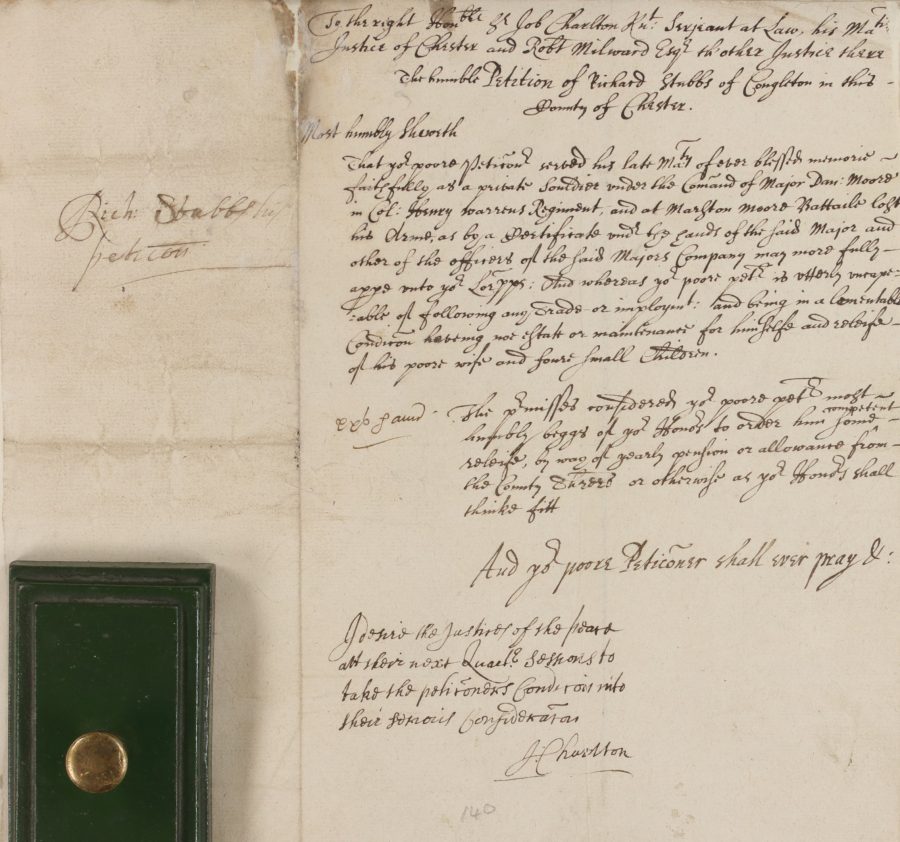 To the right Hon:ble Sr Job Charlton Knt: Serjeant at Law, his Ma:ties
Justice of Chester and Robt Milward Esqr th'other Justice there
The humble Petition of Richard Stubbs of Congleton in this
County of Chester.
Most humbly sheweth
That yor poore Peticonr served his late Maty of ever blessed memorie
faithfully as a private Souldier under the Comand of Major Dan: Moore
in Col: Henry Warrens Regiment, and at Marston Moore Battaile lost
his Arme, as by a Certificate undr the hands of the said Major and
other of the officers of the said Majors Company may more fully
appe unto yor Lorpps: And whereas yor poore petr is utterly uncape=
=able of following any Trade or imploymt: and being in a lamentable
Condicon haveing noe estate or maintenance for himselfe and releife
of his poore wife and foure small Children.
Rich: Stubbs his
peticon
The pmisses considered yor poore petr most
humbly beggs of yor Honors to order him some competent
releife, by way of yearly pension or allowance from
the County Threr or otherwise as yor Honors shall
thinke fitt
And yor poore Peticoner shall ever pray &c:
I desire the Justices of the peace
att their next Quartr Sessions to
take the peticoners Condicion into
their serious Consideracon
J Charlton
140